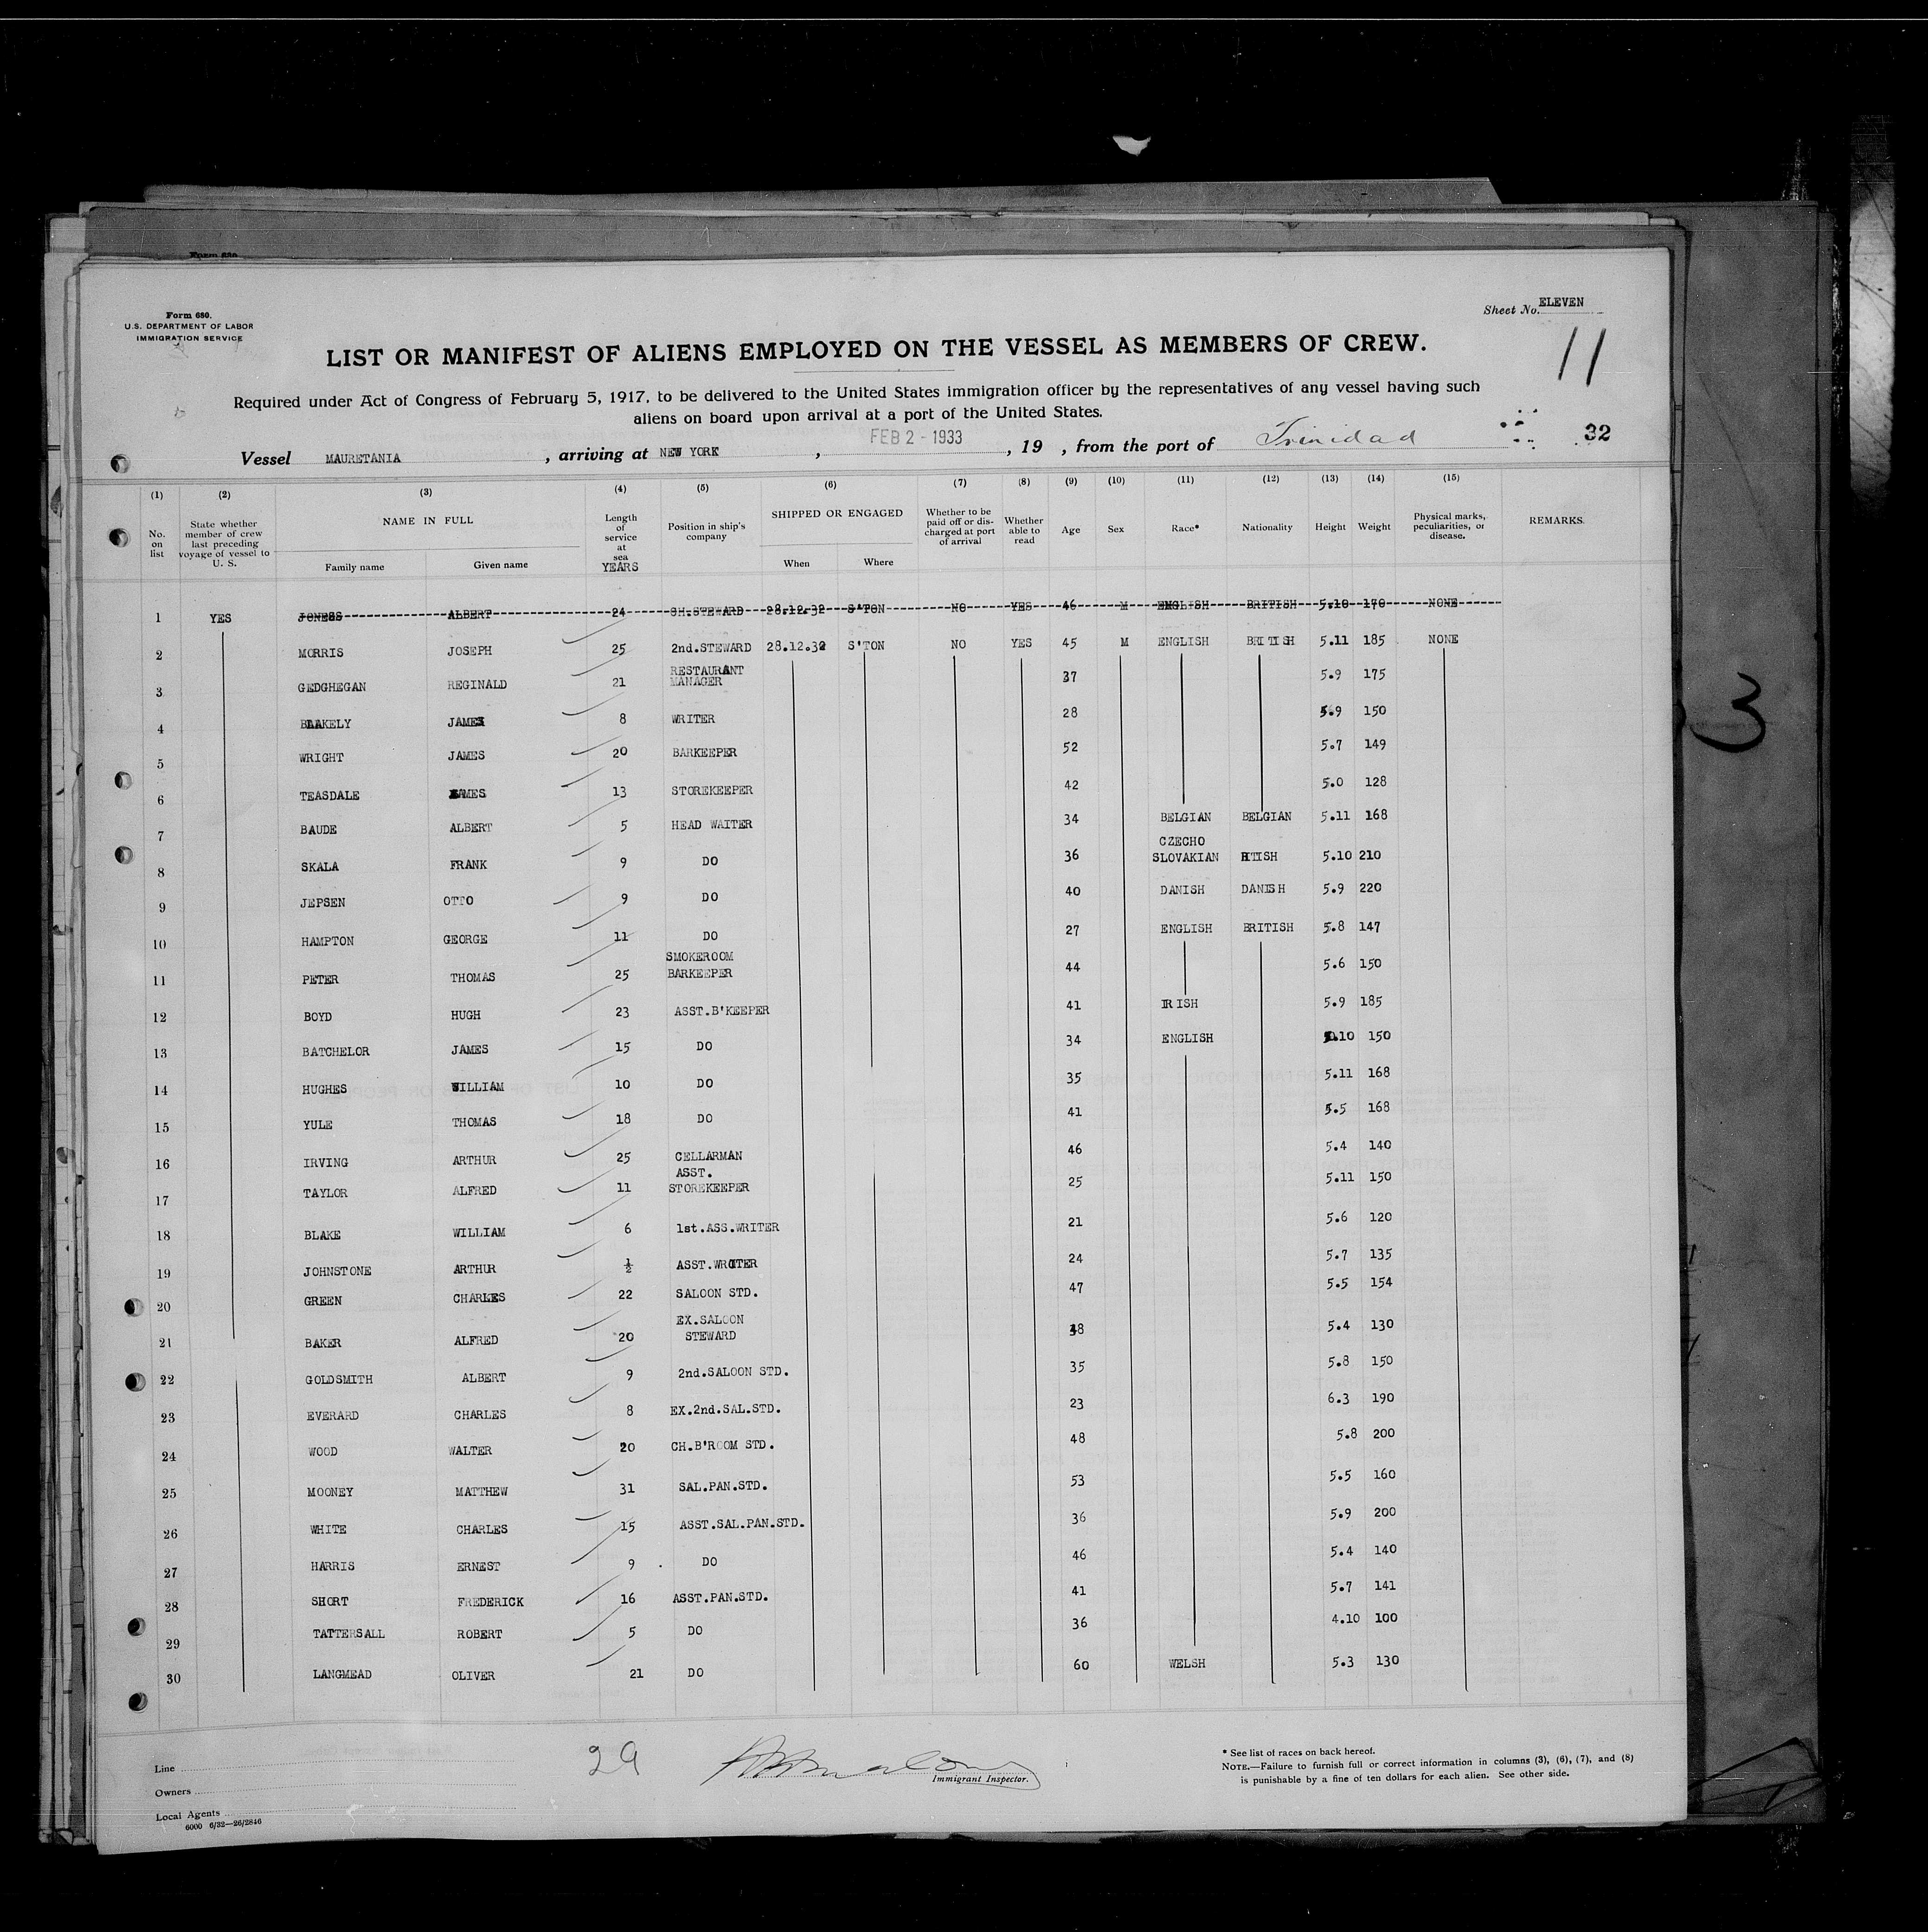 Form 680.
U.S. DEPARTMENT OF LABOR
IMMIGRATION SERVICE
Sheet No. ELEVEN
11
LIST OR MANIFEST OF ALIENS EMPLOYED ON THE VESSEL AS MEMBERS OF CREW.
Required under Act of Congress of February 5, 1917, to be delivered to the United States immigration officer by the representatives of any vessel having such
aliens on board upon arrival at a port of the United States.
Vessel MAURETANIA, arriving at NEW YORK, FEB 2 - 1933, 19 , from the port of Trinidad 32
(1) (2) (3) (4) (5) (6) (7) (8) (9) (10) (11) (12) (13) (14) (15)
No. on list State whether member of crew last preceding voyage of vessel to U. S. NAME IN FULL Family name Given name Length of service at sea YEARS Position in ship's company SHIPPED OR ENGAGED When Where Whether to be paid off or discharged at port of arrival Whether able to read Age Sex Race* Nationality Height Weight Physical marks, peculiarities, or disease. REMARKS.
1 YES JONESS ALBERT 24 CH.STEWARD 28.12.32 S'TON NO YES 46 M ENGLISH BRITISH 5.10 170 NONE
2 MORRIS JOSEPH 25 2nd.STEWARD 28.12.32 S'TON NO YES 45 M ENGLISH BRITISH 5.11 185 NONE
3 GEDGHEGAN REGINALD 21 RESTAURANT MANAGER 37 5.9 175
4 BLAKELY JAMES 8 WRITER 28 5.9 150
5 WRIGHT JAMES 20 BARKEEPER 52 5.7 149
6 TEASDALE JAMES 13 STOREKEEPER 42 5.0 128
7 BAUDE ALBERT 5 HEAD WAITER 34 BELGIAN BELGIAN 5.11 168
8 SKALA FRANK 9 DO 36 CZECHO SLOVAKIAN 5.10 210
9 JEPSEN OTTO 9 DO 40 DANISH DANISH 5.9 220
10 HAMPTON GEORGE 11 DO 27 ENGLISH BRITISH 5.8 147
11 PETER THOMAS 25 SMOKEROOM BARKEEPER 44 5.6 150
12 BOYD HUGH 23 ASST.B'KEEPER 41 IRISH 5.9 185
13 BATCHELOR JAMES 15 DO 34 ENGLISH 5.10 150
14 HUGHES WILLIAM 10 DO 35 5.11 168
15 YULE THOMAS 18 DO 41 5.5 168
16 IRVING ARTHUR 25 CELLARMAN 46 5.4 140
17 TAYLOR ALFRED 11 ASST. STOREKEEPER 25 5.11 150
18 BLAKE WILLIAM 6 1st.ASS.WRITER 21 5.6 120
19 JOHNSTONE ARTHUR ½ ASST.WRITER 24 5.7 135
20 GREEN CHARLES 22 SALOON STD. 47 5.5 154
21 BAKER ALFRED 20 EX.SALOON STEWARD 5.4 130
22 GOLDSMITH ALBERT 9 2nd.SALOON STD. 35 5.8 150
23 EVERARD CHARLES 8 EX.2nd.SAL.STD. 23 6.3 190
24 WOOD WALTER 20 CH.B'ROOM STD. 48 5.8 200
25 MOONEY MATTHEW 31 SAL.PAN.STD. 53 5.5 160
26 WHITE CHARLES 15 ASST.SAL.PAN.STD. 36 5.9 200
27 HARRIS ERNEST 9 DO 46 5.4 140
28 SHORT FREDERICK 16 ASST.PAN.STD. 41 5.7 141
29 TATTERSALL ROBERT 5 DO 36 4.10 100
30 LANGMEAD OLIVER 21 DO 60 WELSH 5.3 130
Line
Owners
Local Agents
6000 6/32—26/2846
29
Immigrant Inspector.
* See list of races on back hereof.
NOTE.—Failure to furnish full or correct information in columns (3), (6), (7), and (8)
is punishable by a fine of ten dollars for each alien. See other side.
3